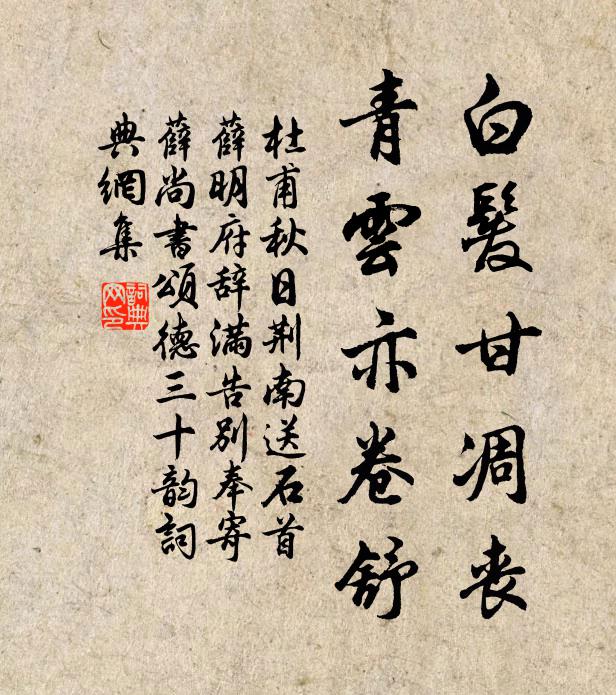 白髮甘凋喪
青雲亦卷舒
杜甫秋日荆南送石首
薛明府辞滿告別奉寄
薛尚書頌德三十韵詞
典網集
詞典網印